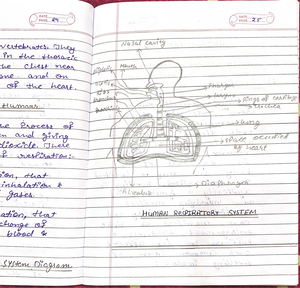 DATE
PAGE 24
vertebrates. They
in the thoracic
the chest near
one and on
of the heart.
Human
he Process of
en and giving
dioxide. There
f respiration:-
ion, that
inhalation &
gases.
ation, that
change of
blood &
System Diagram
DATE
PAGE 25
Nasal cavity
Mouth
Pharynx
Larynx
Rings of cartilage
Trachea
Lung
Place occupied
of heart
Diaphragm
Alveolus
HUMAN RESPIRATORY SYSTEM